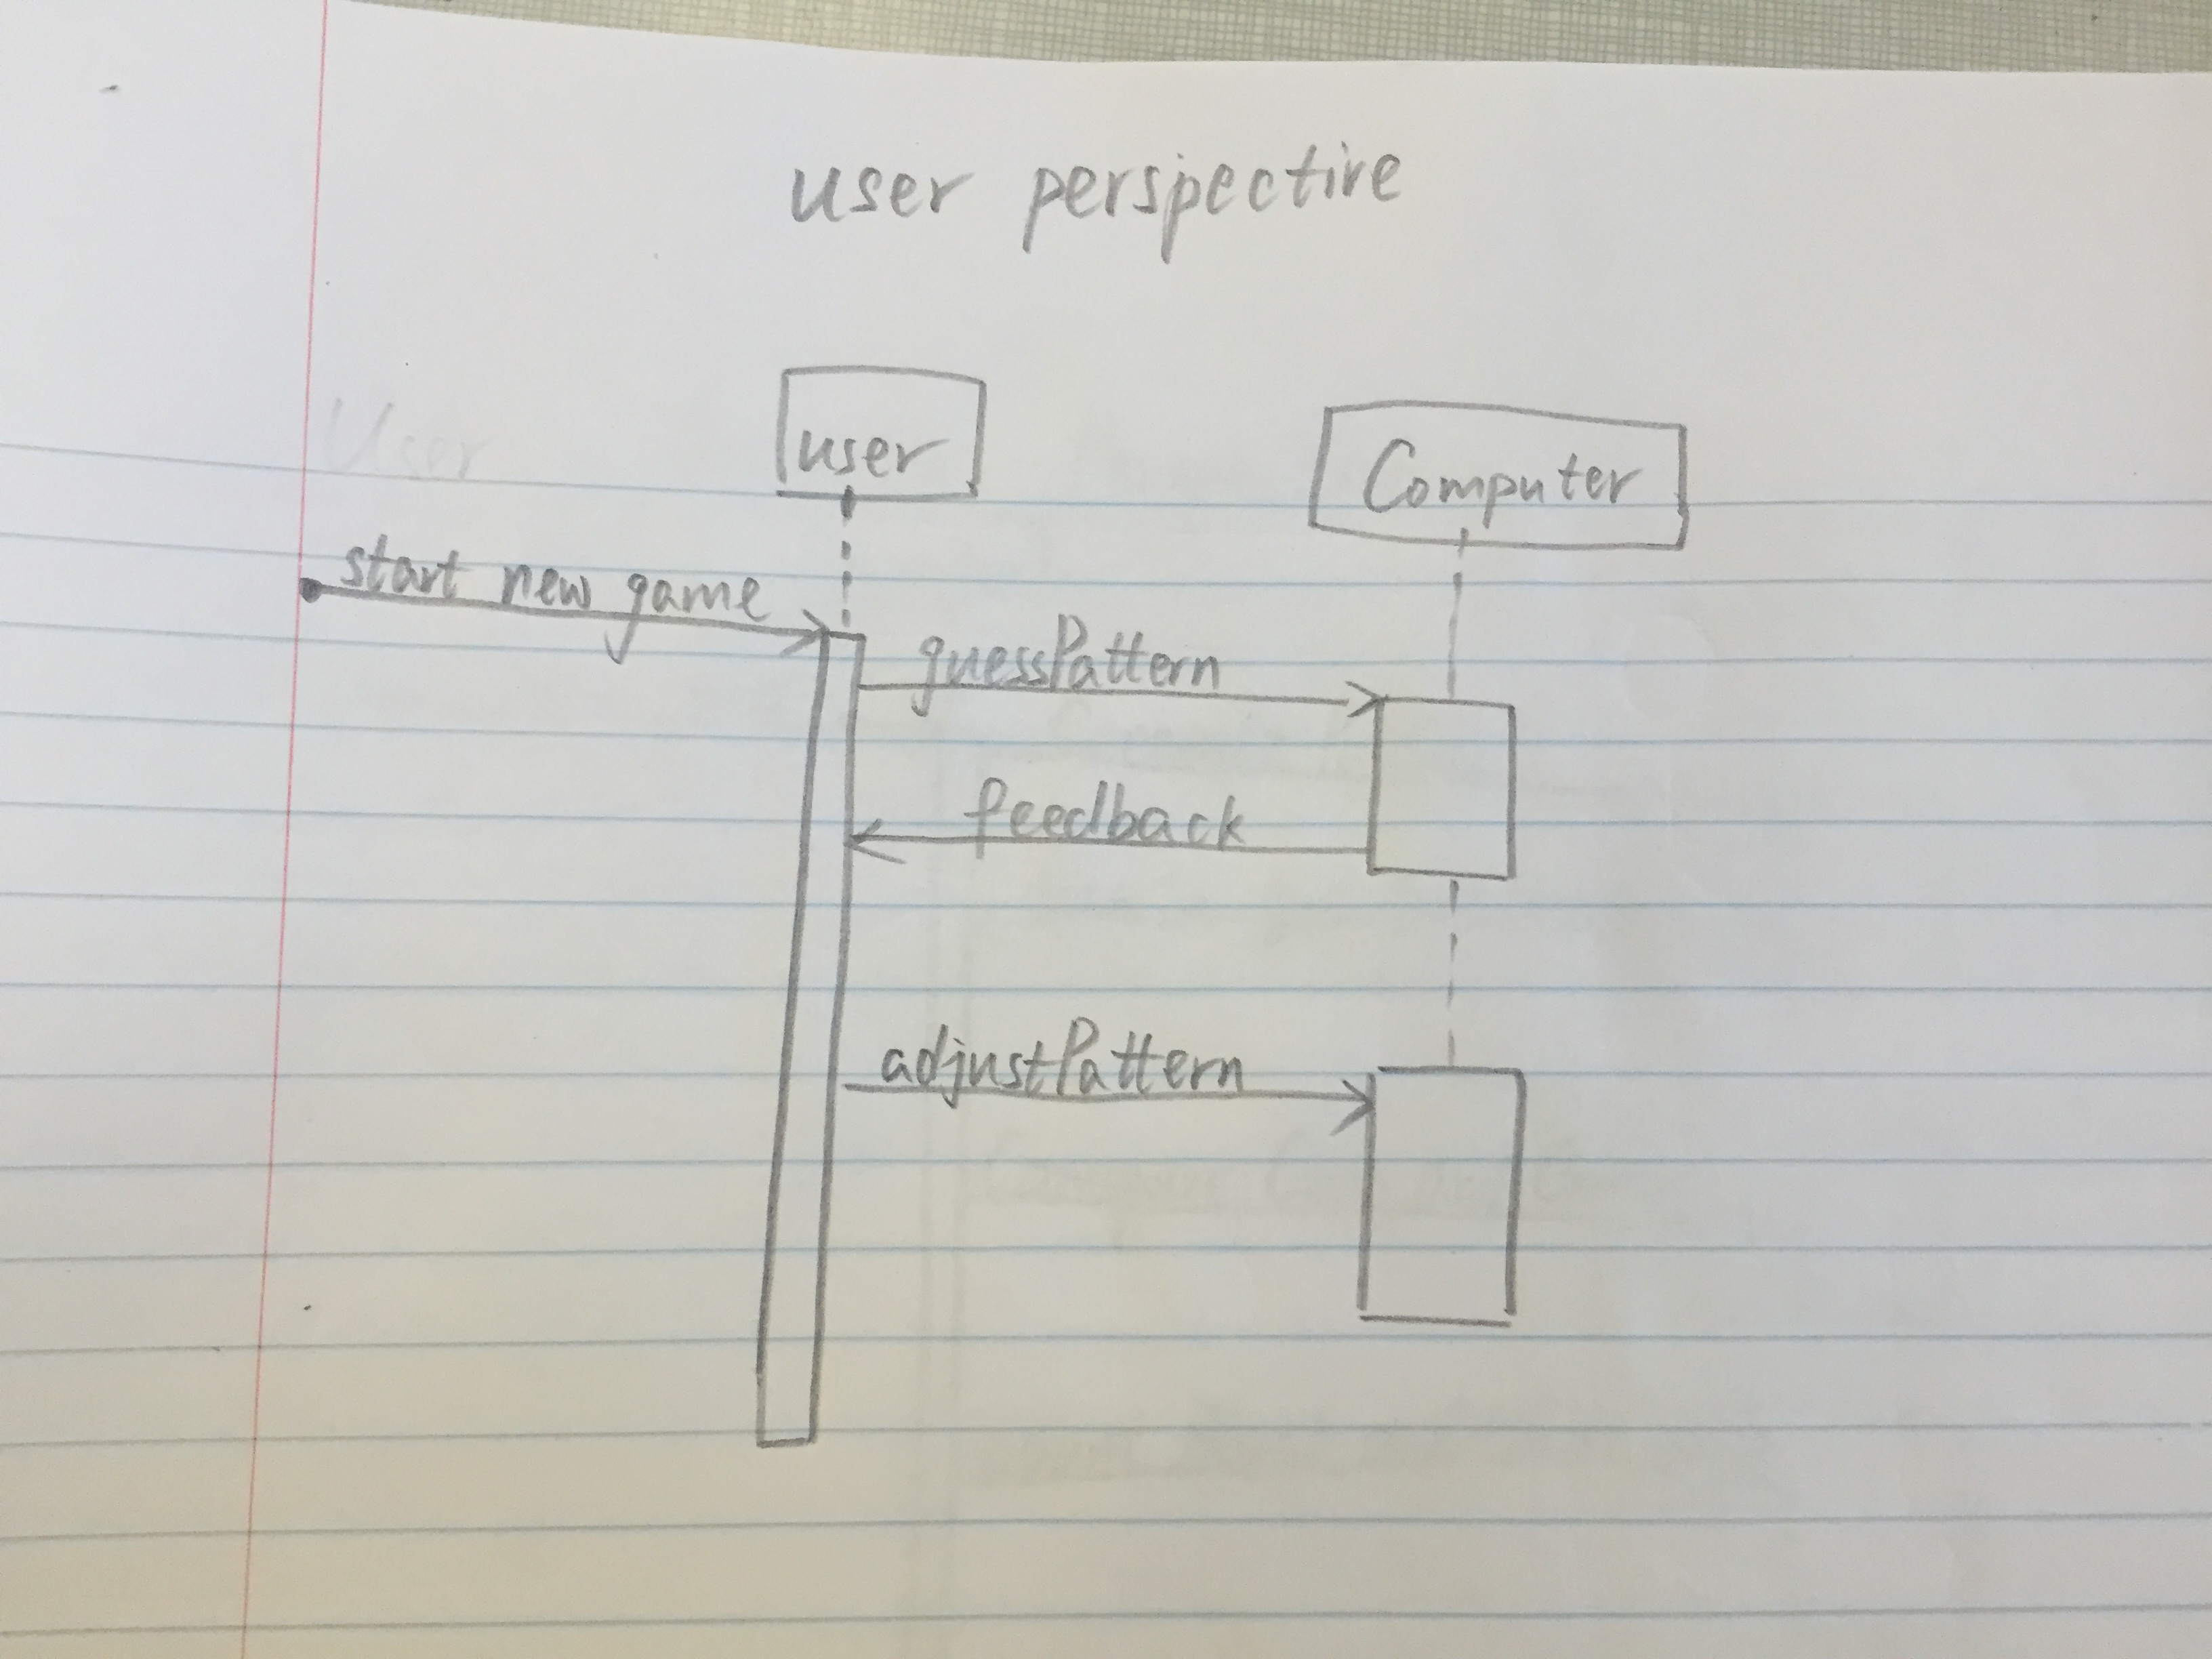 user perspective
User
user
Computer
start new game
guessPattern
feedback
adjustPattern